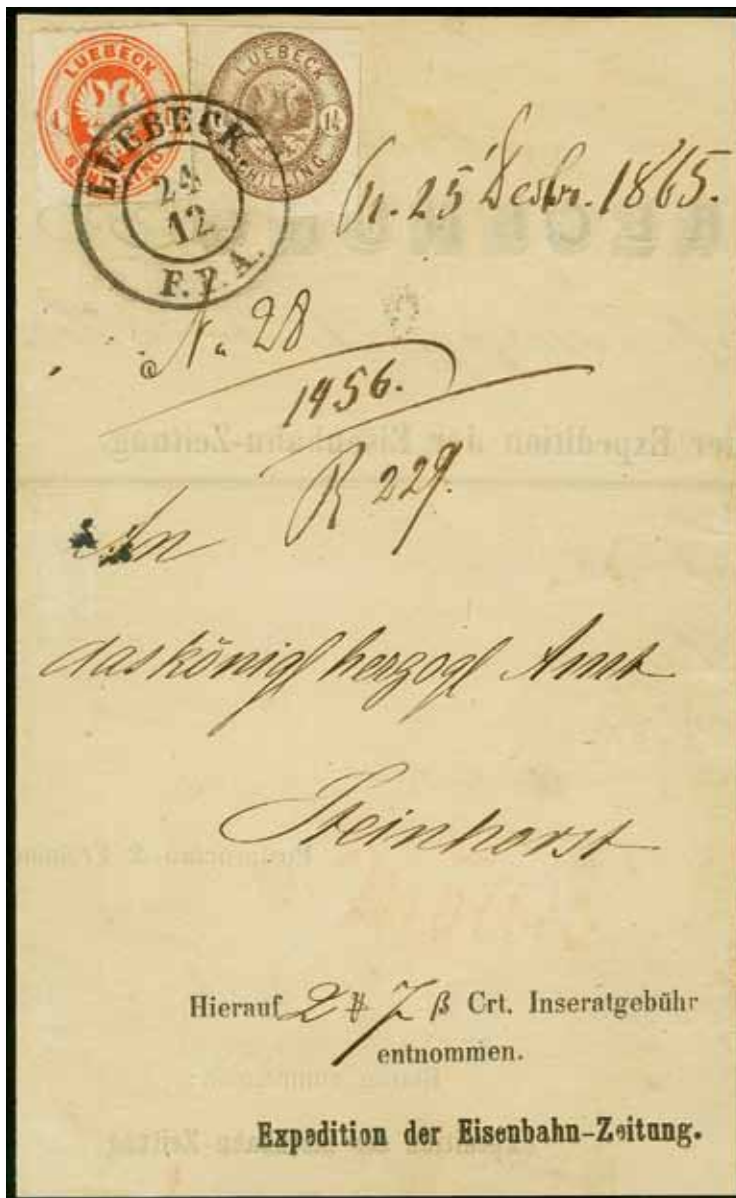 LUEBECK LUEBECK
1 SCHILLING 1¼ SCHILLING
LUEBECK.
24
12
F.P.A.
25 Decbr. 1865.
No 28
1456.
R 229.
An
das königl herzogl Amt
Steinhorst
Hierauf 2 # 7 β Crt. Inseratgebühr
entnommen.
Expedition der Eisenbahn-Zeitung.